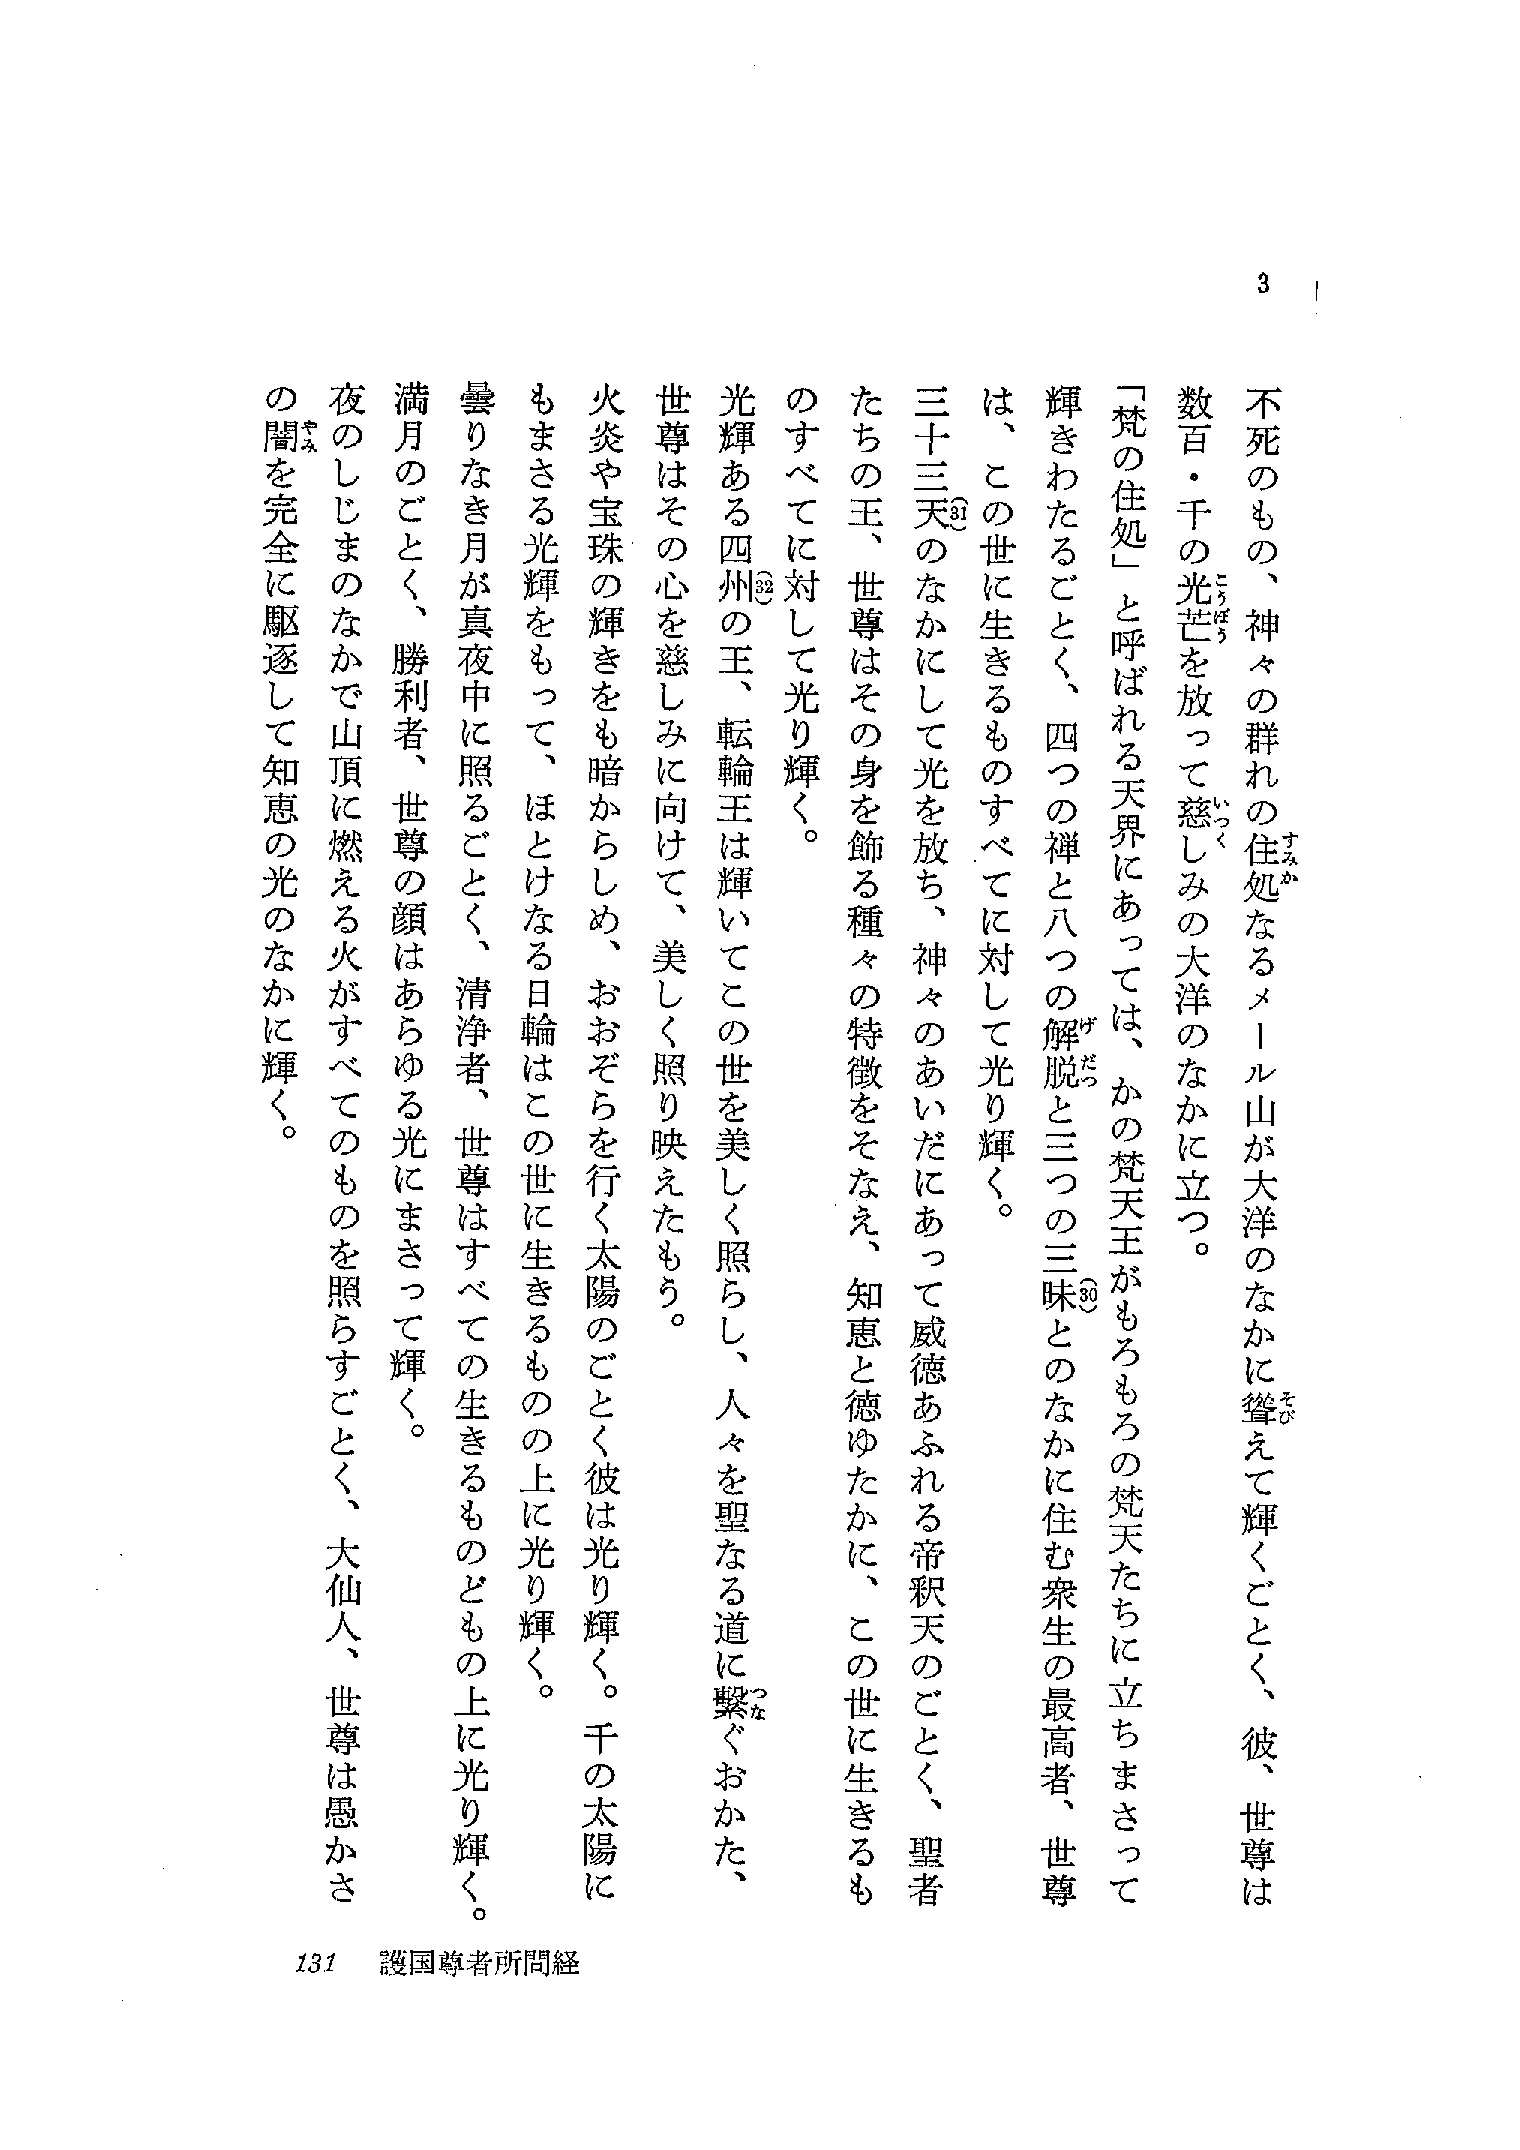 3
不死のもの、神々の群れの住処なるメール山が大洋のなかに聳えて輝くごとく、彼、世尊は
数百・千の光芒を放って慈しみの大洋のなかに立つ。
「梵の住処」と呼ばれる天界にあっては、かの梵天王がもろもろの梵天たちに立ちまさって
輝きわたるごとく、四つの禅と八つの解脱と三つの三昧(30)とのなかに住む衆生の最高者、世尊
は、この世に生きるものすべてに対して光り輝く。
三十三天(31)のなかにして光を放ち、神々のあいだにあって威徳あふれる帝釈天のごとく、聖者
たちの王、世尊はその身を飾る種々の特徴をそなえ、知恵と徳ゆたかに、この世に生きるも
のすべてに対して光り輝く。
光輝ある四州(32)の王、転輪王は輝いてこの世を美しく照らし、人々を聖なる道に繫ぐおかた、
世尊はその心を慈しみに向けて、美しく照り映えたもう。
火炎や宝珠の輝きをも暗からしめ、おおぞらを行く太陽のごとく彼は光り輝く。千の太陽に
もまさる光輝をもって、ほとけなる日輪はこの世に生きるものの上に光り輝く。
曇りなき月が真夜中に照るごとく、清浄者、世尊はすべての生きるものどもの上に光り輝く。
満月のごとく、勝利者、世尊の顔はあらゆる光にまさって輝く。
夜のしじまのなかで山頂に燃える火がすべてのものを照らすごとく、大仙人、世尊は愚かさ
の闇を完全に駆逐して知恵の光のなかに輝く。
131 護国尊者所問経